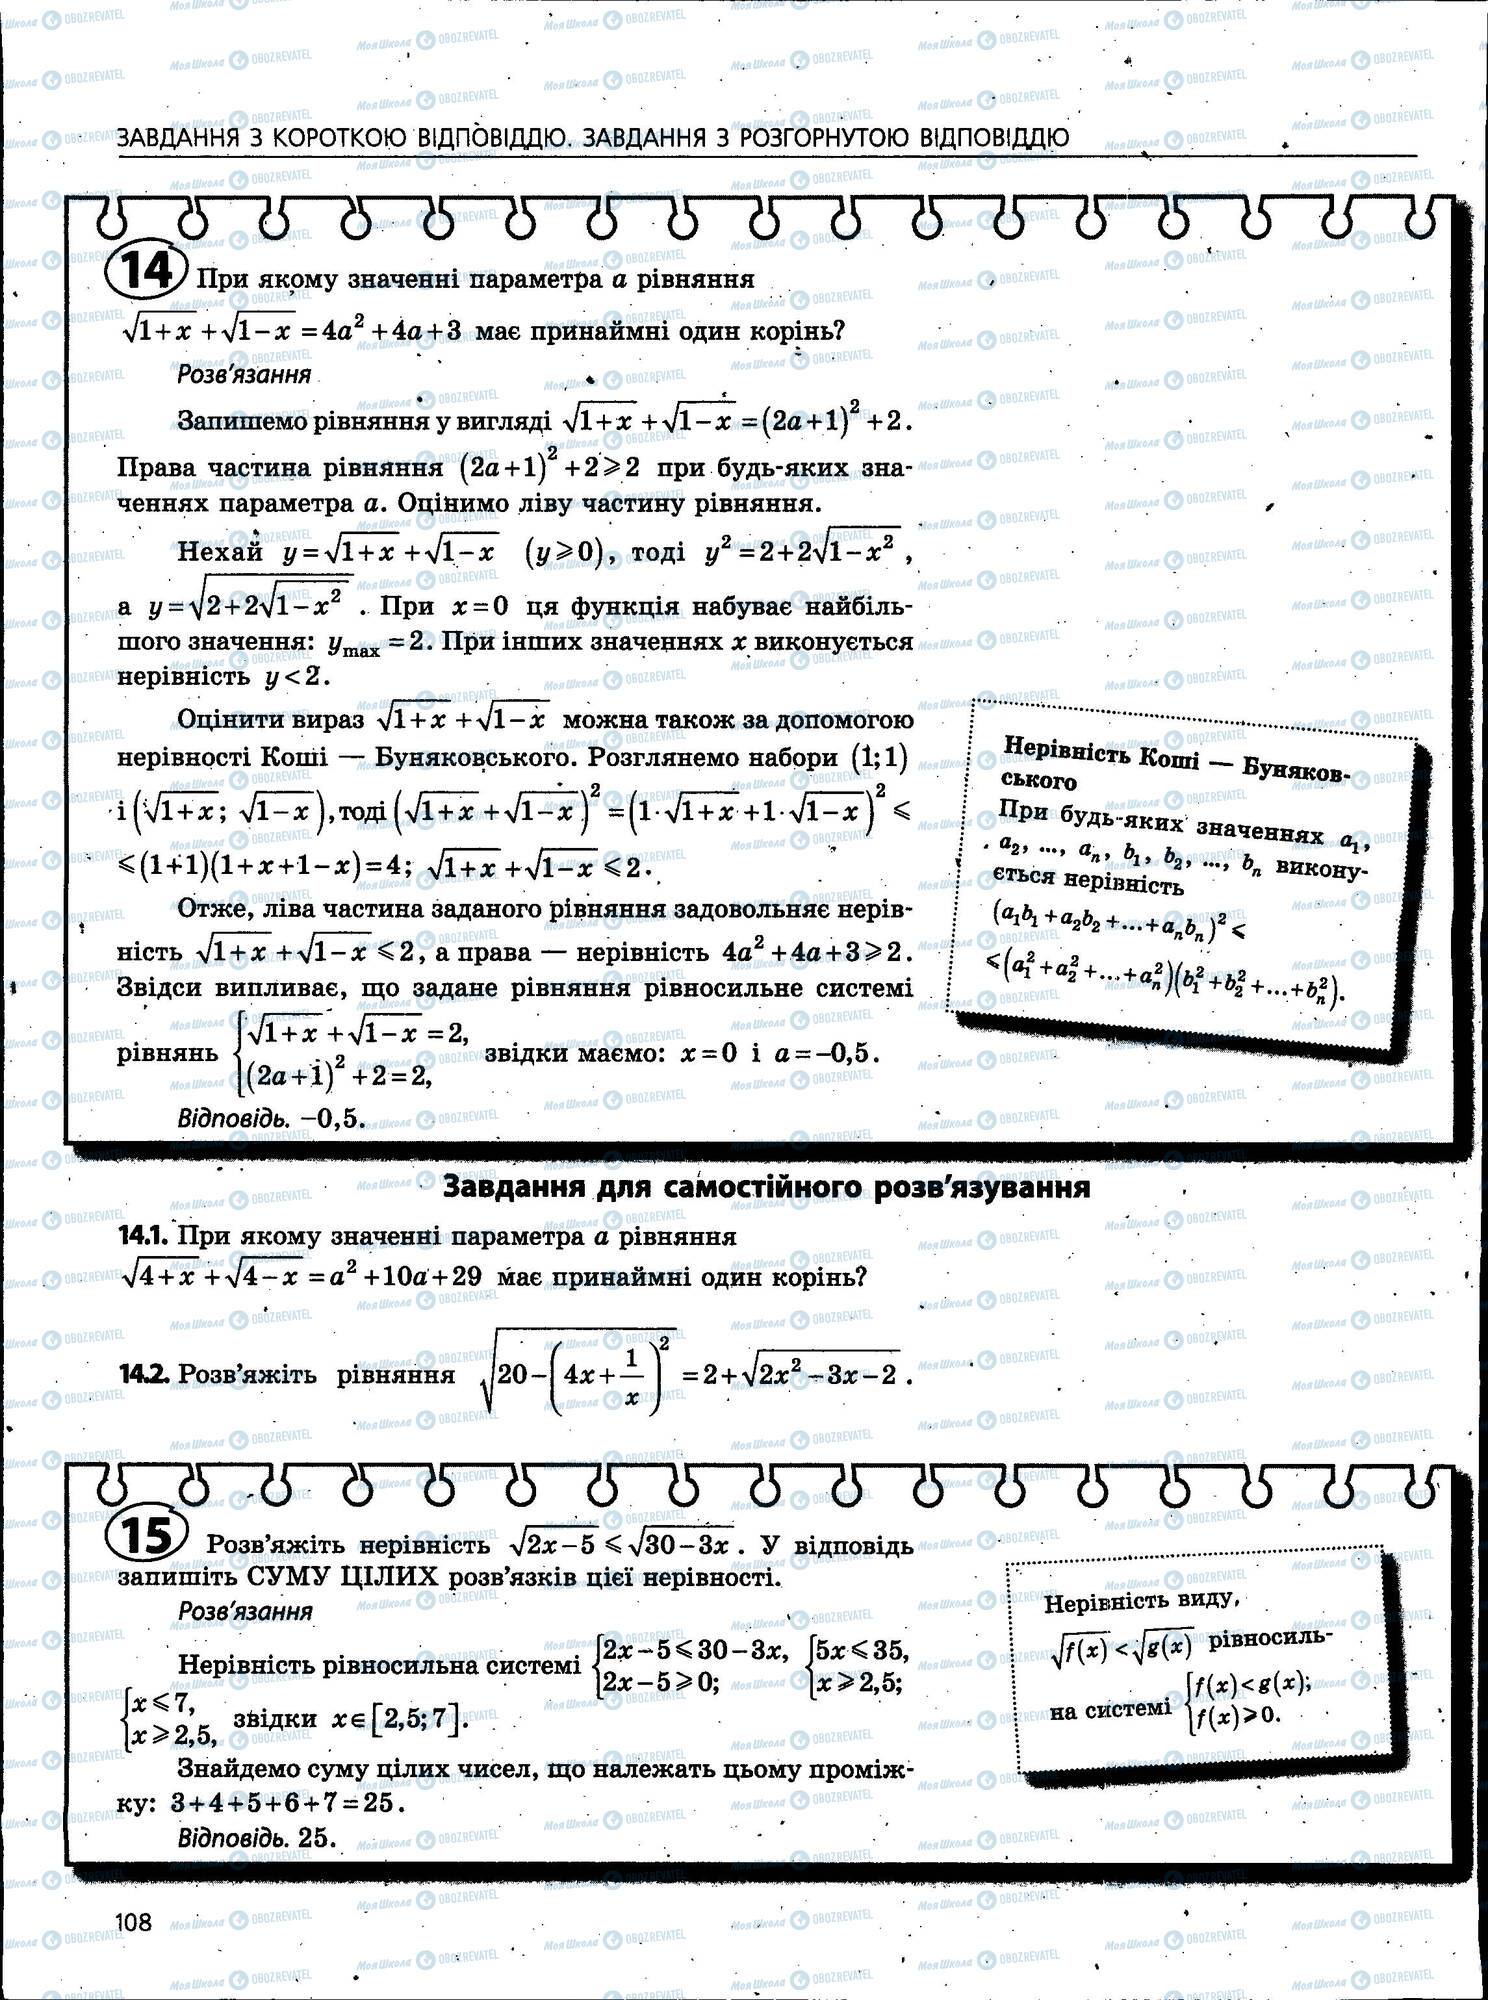 ЗАВДАННЯ З КОРОТКОЮ ВІДПОВІДДЮ. ЗАВДАННЯ З РОЗГОРНУТОЮ ВІДПОВІДДЮ
14 При якому значенні параметра a рівняння
√(1+x) + √(1−x) = 4a² + 4a + 3 має принаймні один корінь?
Розв'язання
Запишемо рівняння у вигляді √(1+x) + √(1−x) = (2a+1)² + 2.
Права частина рівняння (2a+1)² + 2 ⩾ 2 при будь-яких зна-
ченнях параметра a. Оцінимо ліву частину рівняння.
Нехай y = √(1+x) + √(1−x) (y ⩾ 0), тоді y² = 2 + 2√(1−x²),
а y = √(2 + 2√(1−x²)). При x = 0 ця функція набуває найбіль-
шого значення: y_max = 2. При інших значеннях x виконується
нерівність y < 2.
Оцінити вираз √(1+x) + √(1−x) можна також за допомогою
нерівності Коші — Буняковського. Розглянемо набори (1; 1)
і (√(1+x); √(1−x)), тоді (√(1+x) + √(1−x))² = (1·√(1+x) + 1·√(1−x))² ⩽
⩽ (1+1)(1+x+1−x) = 4; √(1+x) + √(1−x) ⩽ 2.
Отже, ліва частина заданого рівняння задовольняє нерів-
ність √(1+x) + √(1−x) ⩽ 2, а права — нерівність 4a² + 4a + 3 ⩾ 2.
Звідси випливає, що задане рівняння рівносильне системі
рівнянь {√(1+x) + √(1−x) = 2, (2a+1)² + 2 = 2, звідки маємо: x = 0 і a = −0,5.
Відповідь. −0,5.
Нерівність Коші — Буняков-
ського
При будь-яких значеннях a₁,
a₂, ..., aₙ, b₁, b₂, ..., bₙ викону-
ється нерівність
(a₁b₁ + a₂b₂ + ... + aₙbₙ)² ⩽
⩽ (a₁² + a₂² + ... + aₙ²)(b₁² + b₂² + ... + bₙ²).
Завдання для самостійного розв'язування
14.1. При якому значенні параметра a рівняння
√(4+x) + √(4−x) = a² + 10a + 29 має принаймні один корінь?
14.2. Розв'яжіть рівняння √(20 − (4x + 1/x)²) = 2 + √(2x² − 3x − 2).
15 Розв'яжіть нерівність √(2x−5) ⩽ √(30−3x). У відповідь
запишіть СУМУ ЦІЛИХ розв'язків цієї нерівності.
Розв'язання
Нерівність рівносильна системі {2x−5 ⩽ 30−3x, 2x−5 ⩾ 0; {5x ⩽ 35, x ⩾ 2,5;
{x ⩽ 7, x ⩾ 2,5, звідки x ∈ [2,5; 7].
Знайдемо суму цілих чисел, що належать цьому проміж-
ку: 3+4+5+6+7=25.
Відповідь. 25.
Нерівність виду,
√f(x) < √g(x) рівносиль-
на системі {f(x) < g(x); f(x) ⩾ 0.
108
Моя Школа OBOZREVATEL